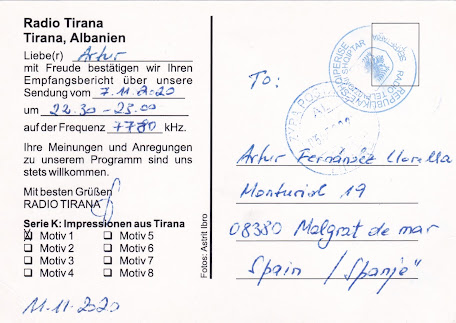 Radio Tirana
Tirana, Albanien
Liebe(r) Artur
mit Freude bestätigen wir Ihren
Empfangsbericht über unsere
Sendung vom 7.11.2020
um 22.30-23.00
auf der Frequenz 7780 kHz.
Ihre Meinungen und Anregungen
zu unserem Programm sind uns
stets willkommen.
Mit besten Grüßen
RADIO TIRANA
Serie K: Impressionen aus Tirana
Motiv 1 Motiv 5
Motiv 2 Motiv 6
Motiv 3 Motiv 7
Motiv 4 Motiv 8
11.11.2020
Fotos: Astrit Ibro
REPUBLIKA E SHQIPERISE
To:
Artur Fernández Llorella
Monturiol 19
08380 Malgrat de mar
Spain / Spanje"